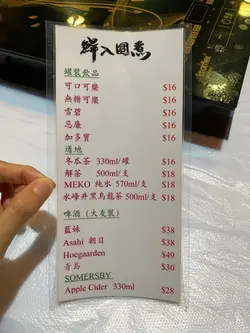 鮮入圍煮
罐裝飲品
可口可樂 $16
無糖可樂 $16
雪碧 $16
忌廉 $16
加多寶 $16
道地
冬瓜茶 330ml/罐 $16
解茶 500ml/支 $18
MEKO 純水 570ml/支 $18
水峰井黑烏龍茶 500ml/支 $18
啤酒 (大友裝)
藍妹 $38
Asahi 朝日 $38
Hoegaarden $49
青島 $30
SOMERSBY
Apple Cider 330ml $28